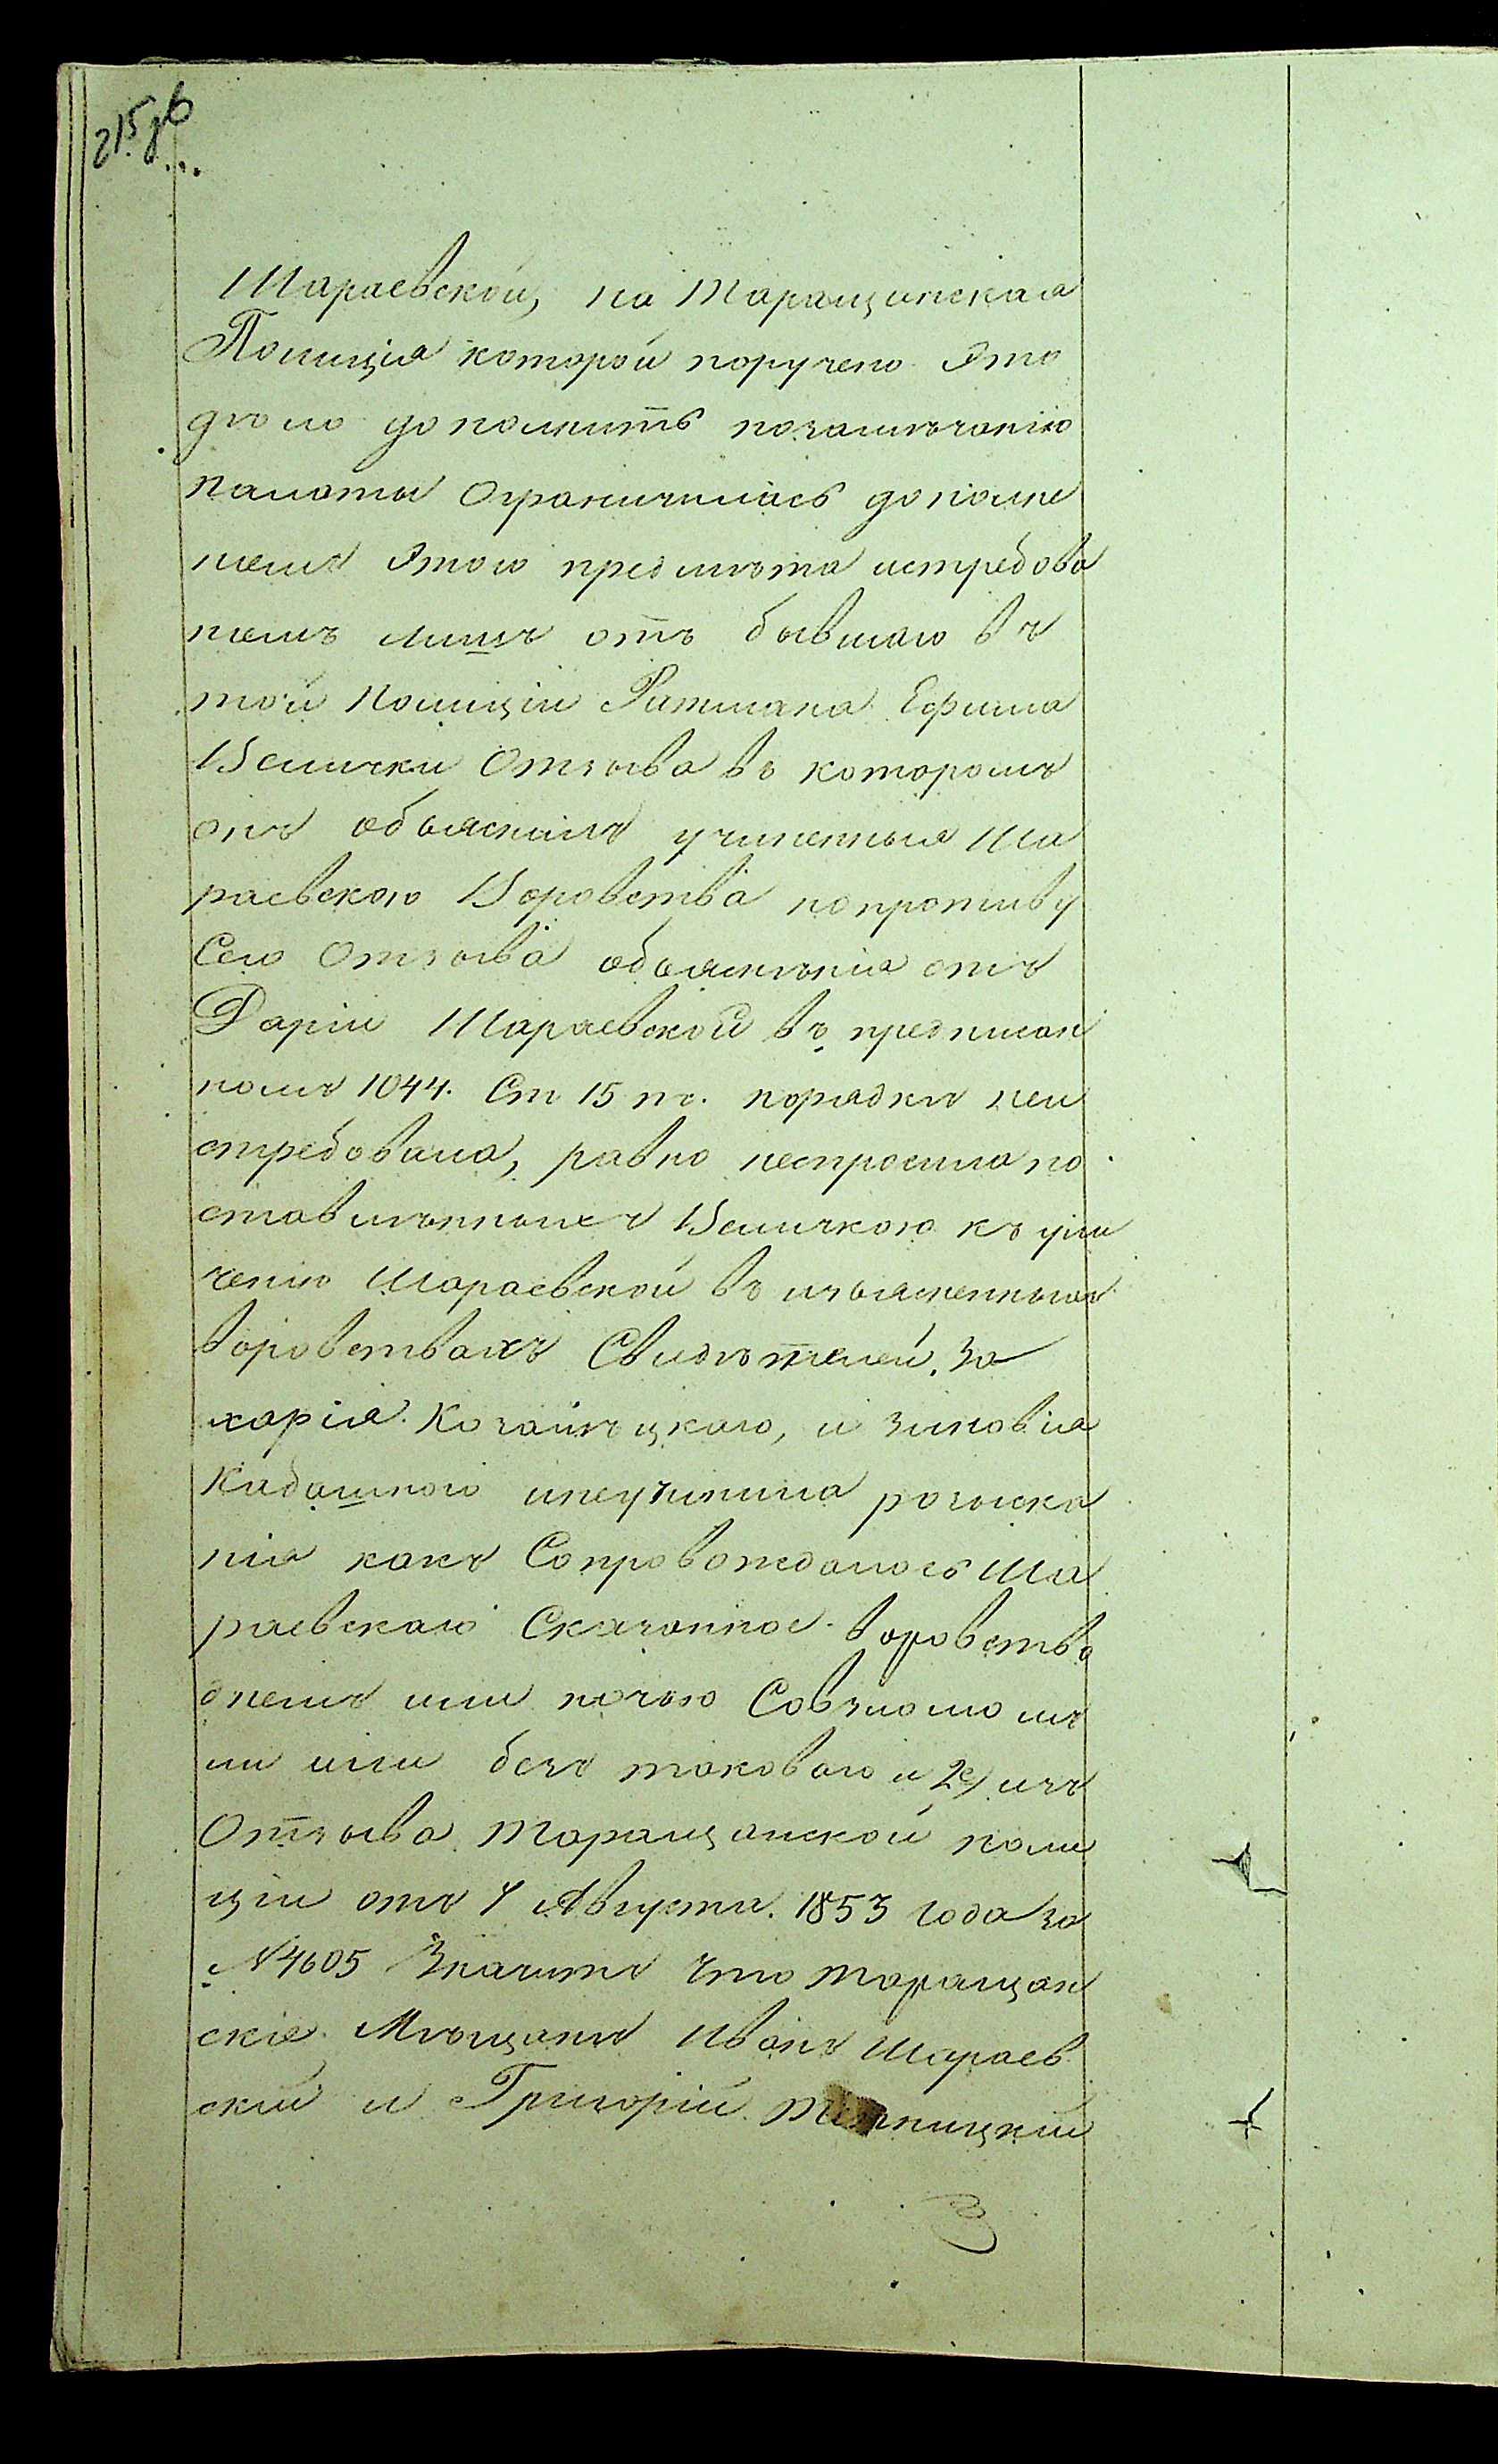 215 об
Шараевской, но Таращанская
Полиція которой поручено Это
дѣло дополнить позамѣчанію
палаты Ограничилась дополне
ніемъ Этого предмѣта истребова
ніемъ лишь отъ бывшаго въ
той Полиціи Ратмана Ефима
Велички Отзыва въ которомъ
онъ объяснилъ учиненныя Ша
раевскою Воровства но противу
Сего Отзыва объясненія отъ
Даріи Шараевской въ предписан
номъ 1044. Ст 15 т. порядкѣ неи
стребовала, равно неспросила по
ставленныхъ Величкою къ ули
ченію Шараевской въ изъясненныхъ
воровствахъ Свидѣтелей, За
харія и Зиновія
инеучинила розыска
нія какъ Сопровождалось Ша
раевскаго Сказанное воровство
днемъ или ночью Совзломомъ
ли или безъ таковаго и 2е/ изъ
Отзыва Таращанской поли
ціи отъ 7 Августа 1853 года за
№ 4605 Значитъ что Таращан
скіе Мѣщане Иванъ Шараев
скій и Григорій